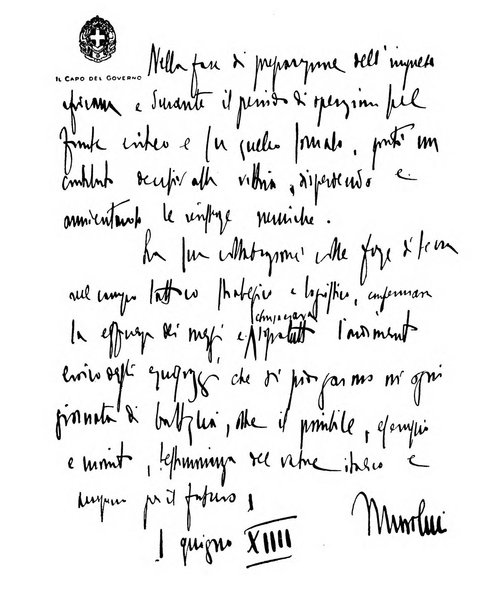 IL CAPO DEL GOVERNO
Nella fase di preparazione dell'impresa
africana e durante il periodo di operazioni sul
fronte eritreo e su quello somalo, portò un
contributo decisivo alla vittoria, disperdendo e
annientando le nemiche.
La sua collaborazione colle forze di terra
nel campo tattico strategico e logistico,
la efficacia dei mezzi e soprattutto l'ardimento
eroico degli equipaggi che si prodigarono in ogni
giornata di battaglia, oltre il possibile, esempio
e monito, testimonianza del valore italico e
per il futuro!
1 giugno XIIII
Mussolini